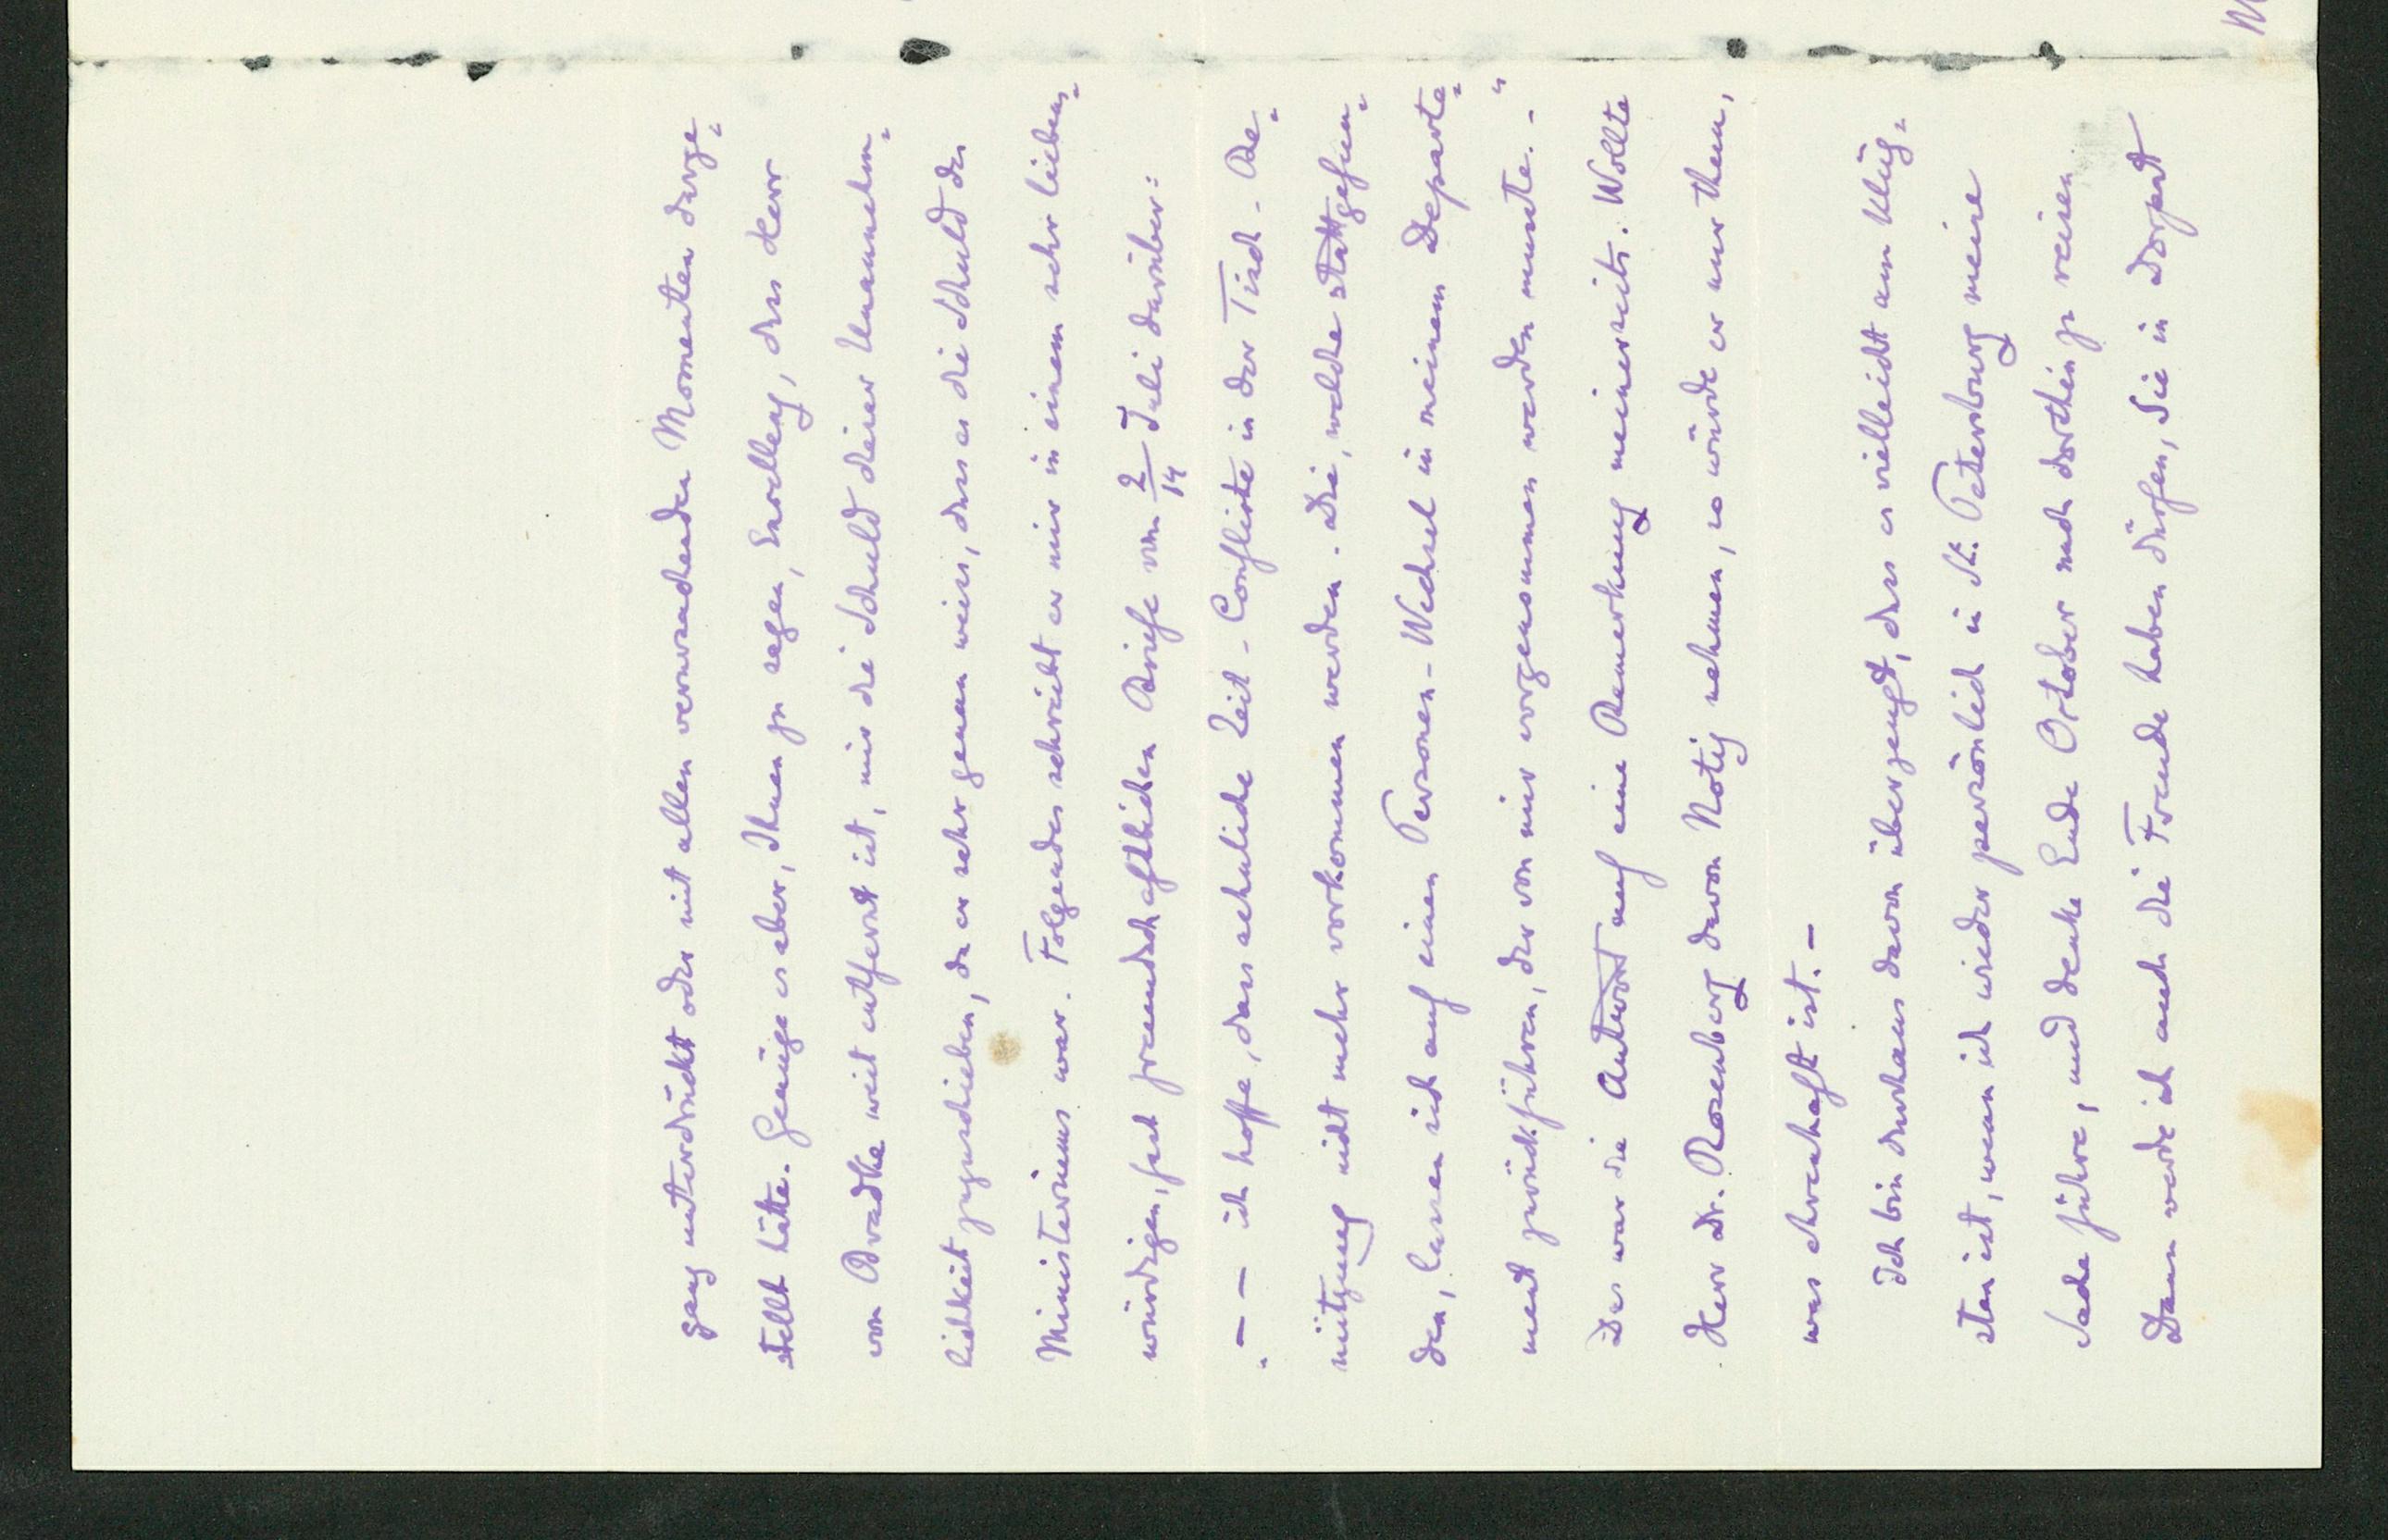 ganz unterdrückt oder mit allen verursachenden Momenten darge-
stellt hätte. Genüge es aber, Ihnen zu sagen, Excellenz, dass Herr
von Bradke weit entfernt ist, mir die Schuld dieser Unannehm-
lichkeit zuzuschieben, da er sehr genau weiss, dass es die Schuld des
Ministeriums war. Folgendes schreibt er mir in einem sehr liebens-
würdigen, fast freundschaftlichen Briefe vom 2/14 Juli darüber:
"— — ich hoffe, dass aehnliche Zeit-Conflicte in der Tisch-Be-
nützung nicht mehr vorkommen werden. Die, welche stattgefun-
den, lassen sich auf einen Personen-Wechsel in meinem Departe-
ment zurückführen, der von mir vorgenommen werden musste. -"
Das war die Antwort auf eine Bemerkung meinerseits. Wollte
Herr Dr. Rosenberg davon Notiz nehmen, so würde er nur thun,
was ehrenhaft ist. —
Ich bin durchaus davon überzeugt, dass es vielleicht am klüg-
sten ist, wenn ich wieder persönlich in St. Petersburg meine
Sache führe, und denke Ende October nach dorthin zu reisen.
Dann werde ich auch die Freude haben dürfen, Sie in Dorpat